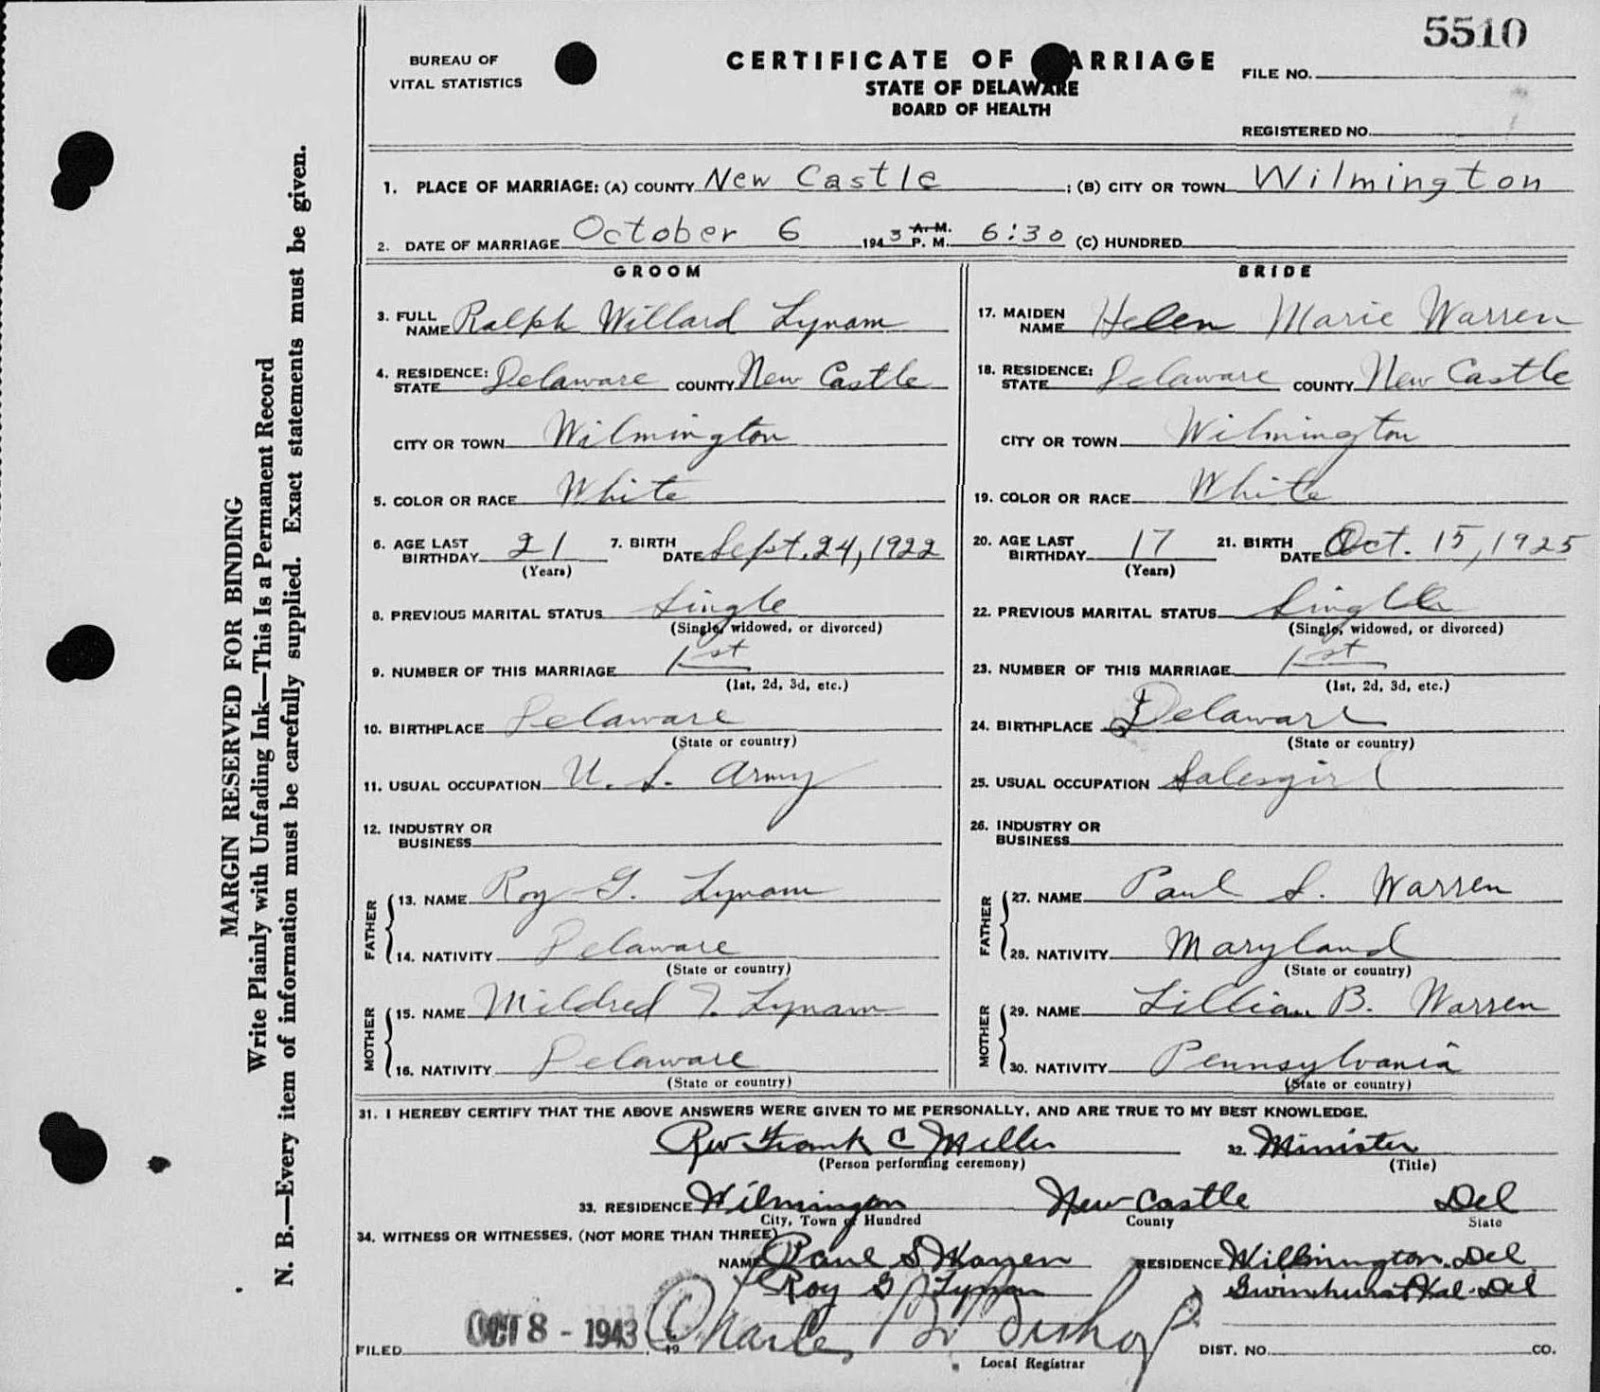 5510
BUREAU OF
VITAL STATISTICS
CERTIFICATE OF MARRIAGE
STATE OF DELAWARE
BOARD OF HEALTH
FILE NO.
REGISTERED NO.
MARGIN RESERVED FOR BINDING
Write Plainly with Unfading Ink—This Is a Permanent Record
N. B.—Every item of information must be carefully supplied. Exact statements must be given.
1. PLACE OF MARRIAGE: (A) COUNTY New Castle ; (B) CITY OR TOWN Wilmington
2. DATE OF MARRIAGE October 6 1943 A. M. P. M. 6:30 (C) HUNDRED
GROOM
3. FULL NAME Ralph Willard Lynam
4. RESIDENCE: STATE Delaware COUNTY New Castle
CITY OR TOWN Wilmington
5. COLOR OR RACE White
6. AGE LAST BIRTHDAY 21 7. BIRTH DATE Sept. 24, 1922
(Years)
8. PREVIOUS MARITAL STATUS Single
(Single, widowed, or divorced)
9. NUMBER OF THIS MARRIAGE 1st
(1st, 2d, 3d, etc.)
10. BIRTHPLACE Delaware
(State or country)
11. USUAL OCCUPATION U. S. Army
12. INDUSTRY OR BUSINESS
FATHER
13. NAME Roy G. Lynam
14. NATIVITY Delaware
(State or country)
MOTHER
15. NAME Mildred T. Lynam
16. NATIVITY Delaware
(State or country)
BRIDE
17. MAIDEN NAME Helen Marie Warren
18. RESIDENCE: STATE Delaware COUNTY New Castle
CITY OR TOWN Wilmington
19. COLOR OR RACE White
20. AGE LAST BIRTHDAY 17 21. BIRTH DATE Oct. 15, 1925
(Years)
22. PREVIOUS MARITAL STATUS Single
(Single, widowed, or divorced)
23. NUMBER OF THIS MARRIAGE 1st
(1st, 2d, 3d, etc.)
24. BIRTHPLACE Delaware
(State or country)
25. USUAL OCCUPATION Salesgirl
26. INDUSTRY OR BUSINESS
FATHER
27. NAME Paul S. Warren
28. NATIVITY Maryland
(State or country)
MOTHER
29. NAME Lillian B. Warren
30. NATIVITY Pennsylvania
(State or country)
31. I HEREBY CERTIFY THAT THE ABOVE ANSWERS WERE GIVEN TO ME PERSONALLY, AND ARE TRUE TO MY BEST KNOWLEDGE.
Rev Frank C Miller 32. Minister
(Person performing ceremony) (Title)
33. RESIDENCE Wilmington New Castle Del
City, Town or Hundred County State
34. WITNESS OR WITNESSES, (NOT MORE THAN THREE)
NAME Paul S Warren RESIDENCE Wilmington. Del
Roy G Lynam Del
FILED OCT 8 - 1943 19 Charles Bishop
Local Registrar DIST. NO. CO.